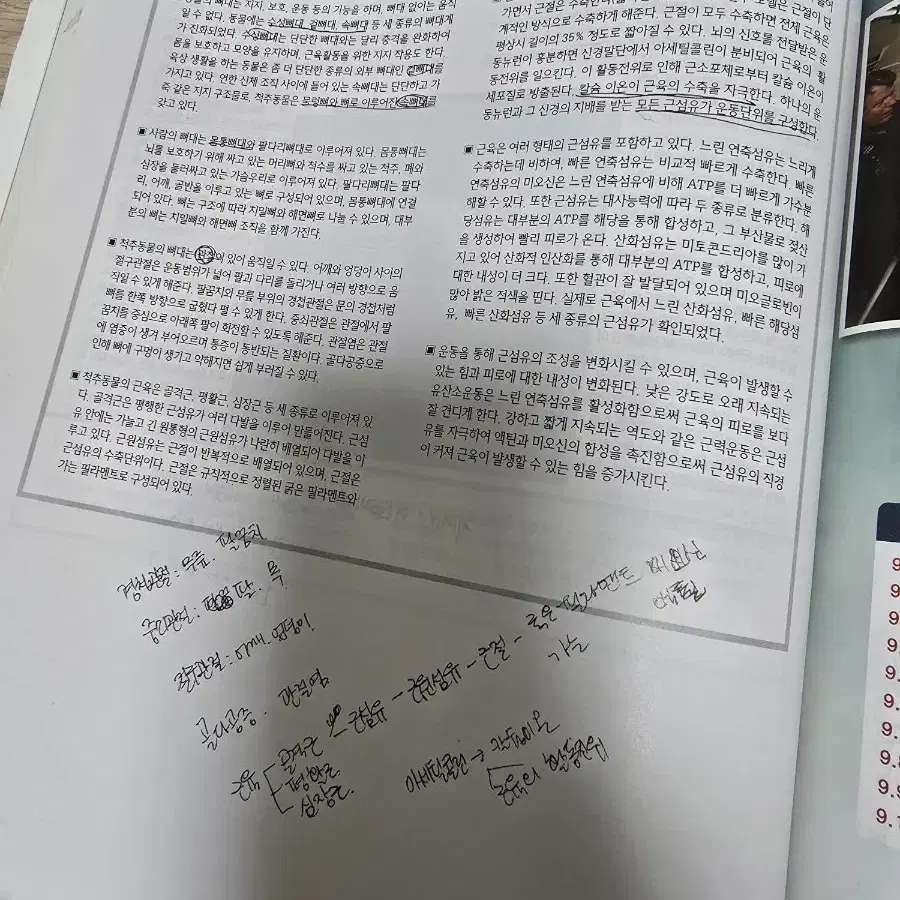 물의 뼈대는 지지, 보호, 운동 등의 기능을 하며, 뼈대 없이는 움직
일 수 없다. 동물에는 수성뼈대, 겉뼈대, 속뼈대 등 세 종류의 뼈대계
가 진화되었다. 수성뼈대는 단단한 뼈대와는 달리 충격을 완화하여
몸을 보호하고 모양을 유지하며, 근육활동을 위한 지지 작용도 한다.
육상 생활을 하는 동물은 좀 더 단단한 종류의 외부 뼈대인 겉뼈대를
가지고 있다. 연한 신체 조직 사이에 들어 있는 속뼈대는 단단하고 가
죽 같은 지지 구조물로, 척추동물은 물렁뼈와 뼈로 이루어진 속뼈대를
갖고 있다.
■ 사람의 뼈대는 몸통뼈대와 팔다리뼈대로 이루어져 있다. 몸통뼈대는
뇌를 보호하기 위해 싸고 있는 머리뼈와 척수를 싸고 있는 척주, 폐와
심장을 둘러싸고 있는 가슴우리로 이루어져 있다. 팔다리뼈대는 팔다
리, 어깨, 골반을 이루고 있는 뼈로 구성되어 있으며, 몸통뼈대에 연결
되어 있다. 뼈는 구조에 따라 치밀뼈와 해면뼈로 나눌 수 있으며, 대부
분의 뼈는 치밀뼈와 해면뼈 조직을 함께 가진다.
■ 척추동물의 뼈대는 관절이 있어 움직일 수 있다. 어깨와 엉덩이 사이의
절구관절은 운동범위가 넓어 팔과 다리를 돌리거나 여러 방향으로 움
직일 수 있게 해준다. 팔꿈치와 무릎 부위의 경첩관절은 문의 경첩처럼
뼈를 한쪽 방향으로 굽혔다 펼 수 있게 한다. 중쇠관절은 관절에서 팔
꿈치를 중심으로 아래쪽 팔이 회전할 수 있도록 해준다. 관절염은 관절
에 염증이 생겨 부어오르며 통증이 동반되는 질환이다. 골다공증으로
인해 뼈에 구멍이 생기고 약해지면 쉽게 부러질 수 있다.
■ 척추동물의 근육은 골격근, 평활근, 심장근 등 세 종류로 이루어져 있
다. 골격근은 평행한 근섬유가 여러 다발을 이루어 만들어진다. 근섬
유 안에는 가늘고 긴 원통형의 근원섬유가 나란히 배열되어 다발을 이
루고 있다. 근원섬유는 근절이 반복적으로 배열되어 있으며, 근절은
근섬유의 수축단위이다. 근절은 규칙적으로 정렬된 굵은 필라멘트와
가는 필라멘트로 구성되어 있다.
가면서 근절을 수축하
계적인 방식으로 수축하게 해준다. 근절이 모두 수축하면 전체 근육은
평상시 길이의 35% 정도로 짧아질 수 있다. 뇌의 신호를 전달받은 운
동뉴런이 흥분하면 신경말단에서 아세틸콜린이 분비되어 근육의 활
동전위를 일으킨다. 이 활동전위로 인해 근소포체로부터 칼슘 이온이
세포질로 방출된다. 칼슘 이온이 근육의 수축을 자극한다. 하나의 운
동뉴런과 그 신경의 지배를 받는 모든 근섬유가 운동단위를 구성한다.
■ 근육은 여러 형태의 근섬유를 포함하고 있다. 느린 연축섬유는 느리게
수축하는데 비하여, 빠른 연축섬유는 비교적 빠르게 수축한다. 빠른
연축섬유의 미오신은 느린 연축섬유에 비해 ATP를 더 빠르게 가수분
해할 수 있다. 또한 근섬유는 대사능력에 따라 두 종류로 분류한다. 해
당섬유는 대부분의 ATP를 해당을 통해 합성하고, 그 부산물로 젖산
을 생성하여 빨리 피로가 온다. 산화섬유는 미토콘드리아를 많이 가
지고 있어 산화적 인산화를 통해 대부분의 ATP를 합성하고, 피로에
대한 내성이 더 크다. 또한 혈관이 잘 발달되어 있으며 미오글로빈이
많아 밝은 적색을 띤다. 실제로 근육에서 느린 산화섬유, 빠른 해당섬
유, 빠른 산화섬유 등 세 종류의 근섬유가 확인되었다.
■ 운동을 통해 근섬유의 조성을 변화시킬 수 있으며, 근육이 발생할 수
있는 힘과 피로에 대한 내성이 변화된다. 낮은 강도로 오래 지속되는
유산소운동은 느린 연축섬유를 활성화함으로써 근육의 피로를 보다
잘 견디게 한다. 강하고 짧게 지속되는 역도와 같은 근력운동은 근섬
유를 자극하여 액틴과 미오신의 합성을 촉진함으로써 근섬유의 직경
이 커져 근육이 발생할 수 있는 힘을 증가시킨다.
경첩관절: 무릎, 팔꿈치
중쇠관절: 팔, 목
절구관절: 어깨, 엉덩이
골다공증, 관절염
근육 골격근 - 근섬유 - 근원섬유 - 근절 - 굵은 필라멘트 미오신
가는
평활근
심장근
아세틸콜린 → 칼슘이온
근육의 활동전위
9.
9.
9.
9.
9.
9.
9.
9.8
9.9
9.1